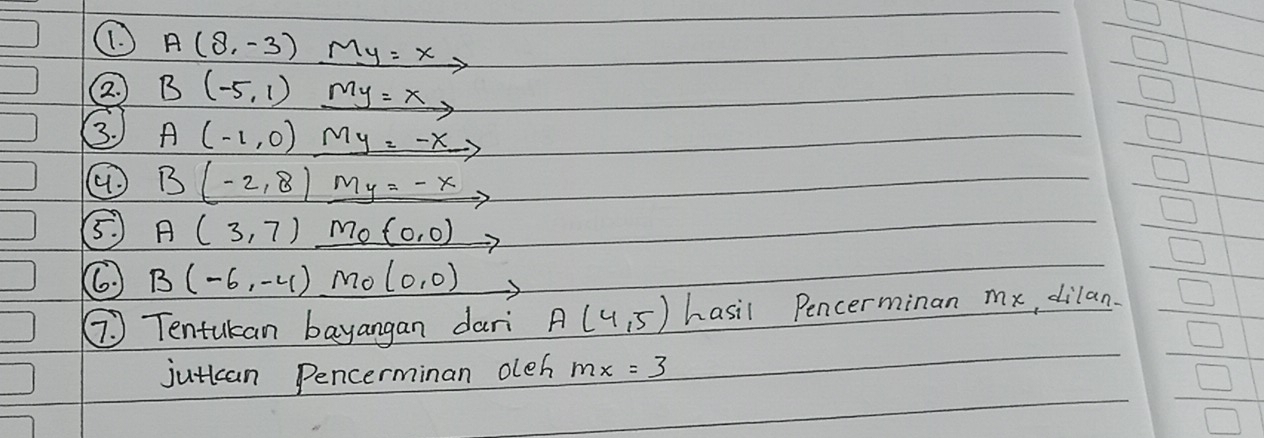 1. A (8, -3) My = x →
2. B (-5, 1) My = x →
3. A (-1, 0) My = -x →
4. B (-2, 8) My = -x →
5. A (3, 7) Mo (0,0) →
6. B (-6, -4) Mo (0,0) →
7. Tentukan bayangan dari A (4,5) hasil Pencerminan mx, dilan-
jutkan Pencerminan oleh mx = 3